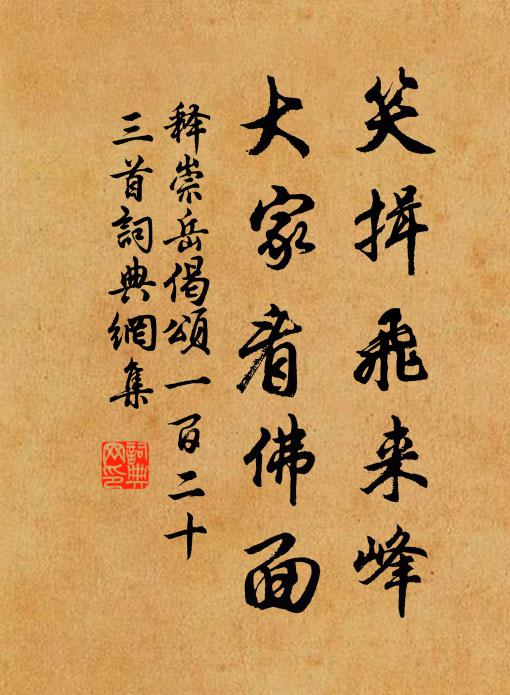 笑揖飛来峰
大家看佛面
釋崇岳偈頌一百二十
三首詞典網集
詞典网印